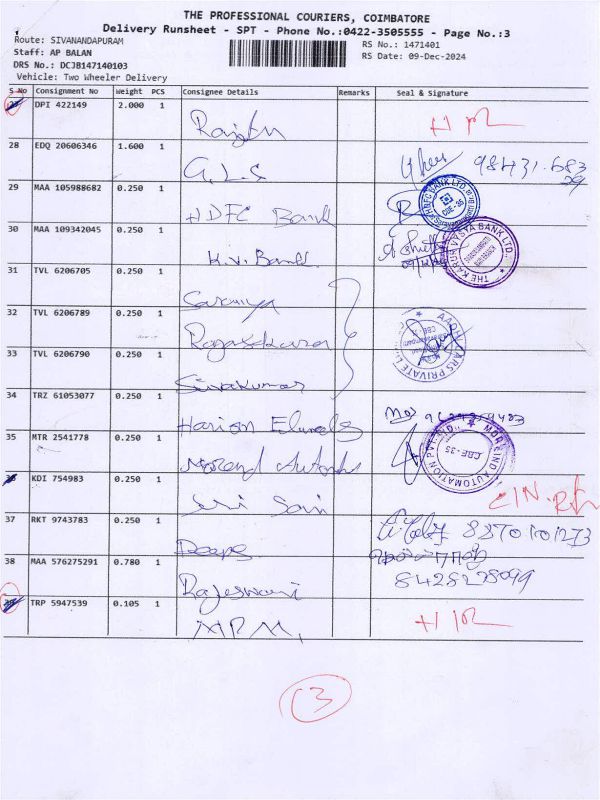 THE PROFESSIONAL COURIERS, COIMBATORE
Delivery Runsheet - SPT - Phone No.:0422-3505555 - Page No.:3
Route: SIVANANDAPURAM
RS No.: 1471401
Staff: AP BALAN
RS Date: 09-Dec-2024
DRS No.: DCJB147140103
Vehicle: Two Wheeler Delivery
S No Consignment No Weight PCS Consignee Details Remarks Seal & Signature
27 DPI 422149 2.000 1
28 EDQ 20606346 1.600 1 G.L.S 98431.683
29 MAA 105988682 0.250 1 HDFC Bank
30 MAA 109342045 0.250 1 K.V. Bank THE KARUR VYSYA BANK LTD.,
31 TVL 6206705 0.250 1 Saranya
32 TVL 6206789 0.250 1 Rajasekaran
33 TVL 6206790 0.250 1 Sivakumar
34 TRZ 61053077 0.250 1 Harion
35 MTR 2541778 0.250 1 CBE-35
36 KDI 754983 0.250 1 Sri Sai
37 RKT 9743783 0.250 1 Deepa 8870101273
38 MAA 576275291 0.780 1 Rajeswari 8428228099
39 TRP 5947539 0.105 1 MPM,
3